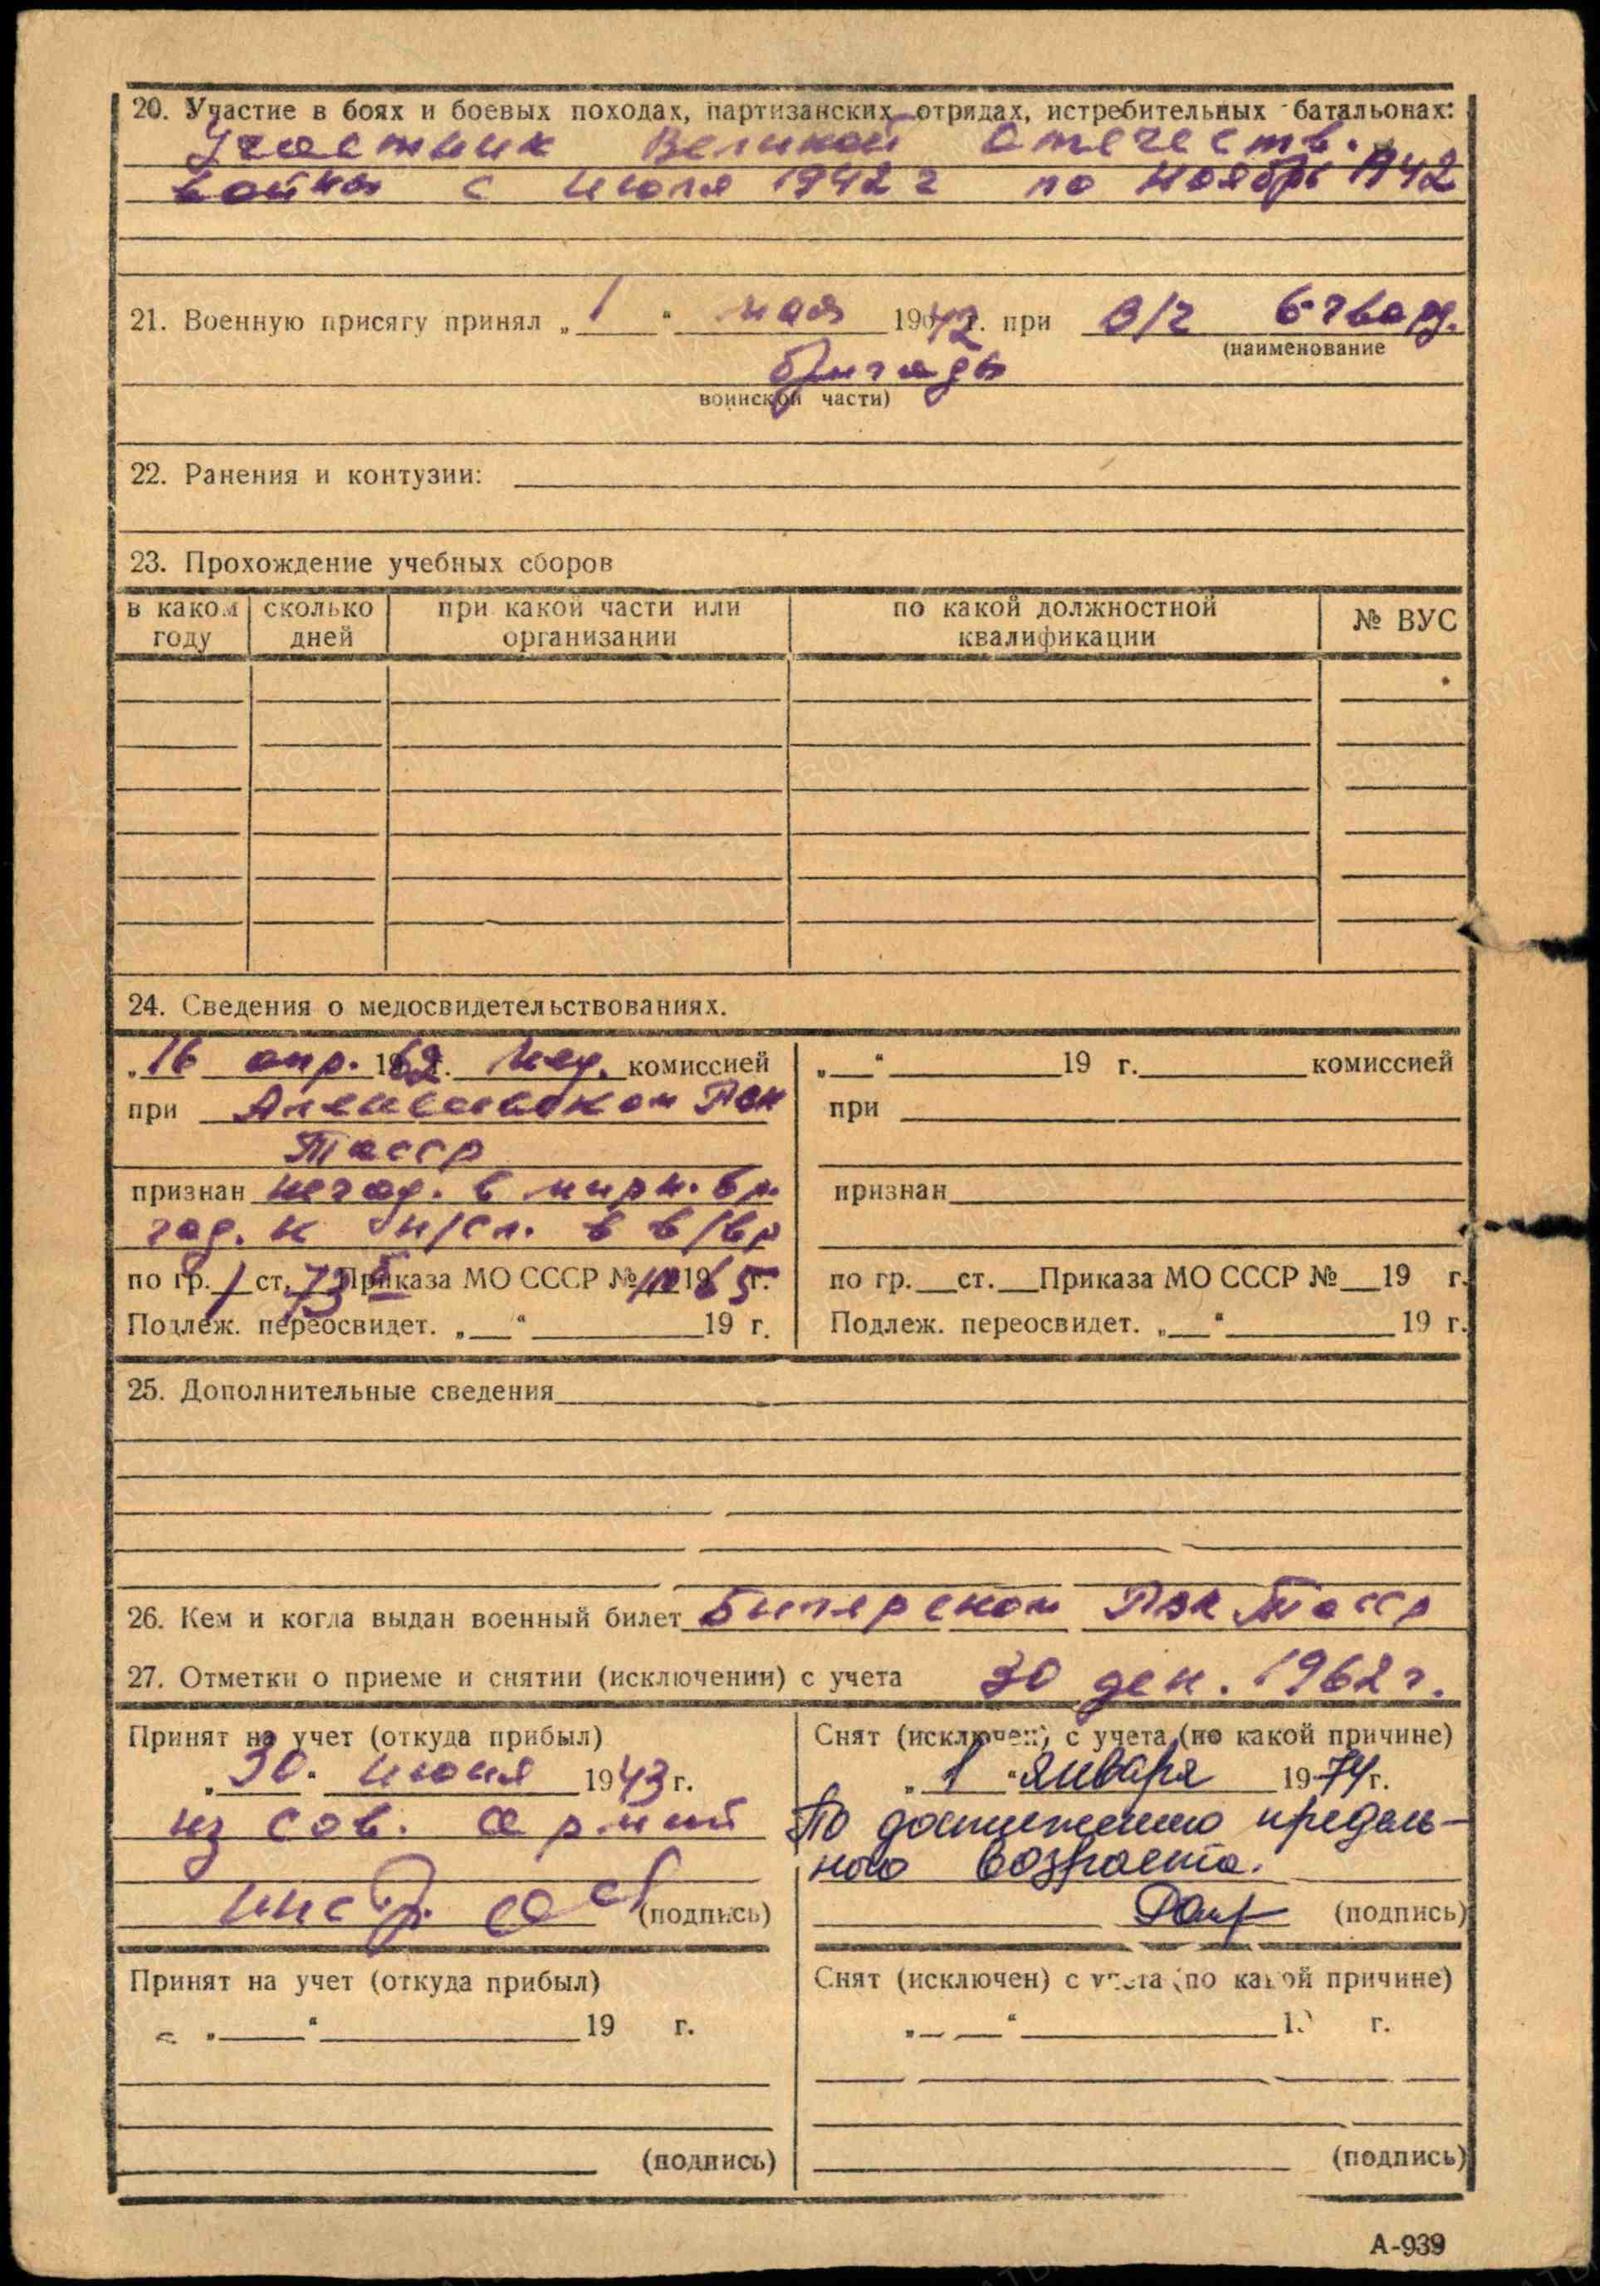 20. Участие в боях и боевых походах, партизанских отрядах, истребительных батальонах:
Участник Великой Отечеств.
войны с июля 1942 г по ноябрь 1942
21. Военную присягу принял „1“ мая 1942 г. при в/ч 6 гвард.
(наименование
бригады
воинской части)
22. Ранения и контузии:
23. Прохождение учебных сборов
в каком году | сколько дней | при какой части или организации | по какой должностной квалификации | № ВУС
24. Сведения о медосвидетельствованиях.
„16 апр. 1962 г. мед. комиссией
при Алексеевском РВК
ТАССР
признан негод. в мирн. вр.
год. к н/сл. в в/вр
по гр. 1 ст. 73 Приказа МО СССР № 1965 г.
Подлеж. переосвидет. „ “ 19 г.
„ “ 19 г. комиссией
при
признан
по гр. ст. Приказа МО СССР № 19 г.
Подлеж. переосвидет. „ “ 19 г.
25. Дополнительные сведения
26. Кем и когда выдан военный билет Билярском РВК ТАССР
27. Отметки о приеме и снятии (исключении) с учета 30 дек. 1962 г.
Принят на учет (откуда прибыл)
„30“ июня 1943 г.
из сов. армий
(подпись)
Снят (исключен) с учета (по какой причине)
„1“ января 1974 г.
По достижению предель-
ного возраста.
(подпись)
Принят на учет (откуда прибыл)
„ “ 19 г.
(подпись)
Снят (исключен) с учета (по какой причине)
„ “ 19 г.
(подпись)
А-939